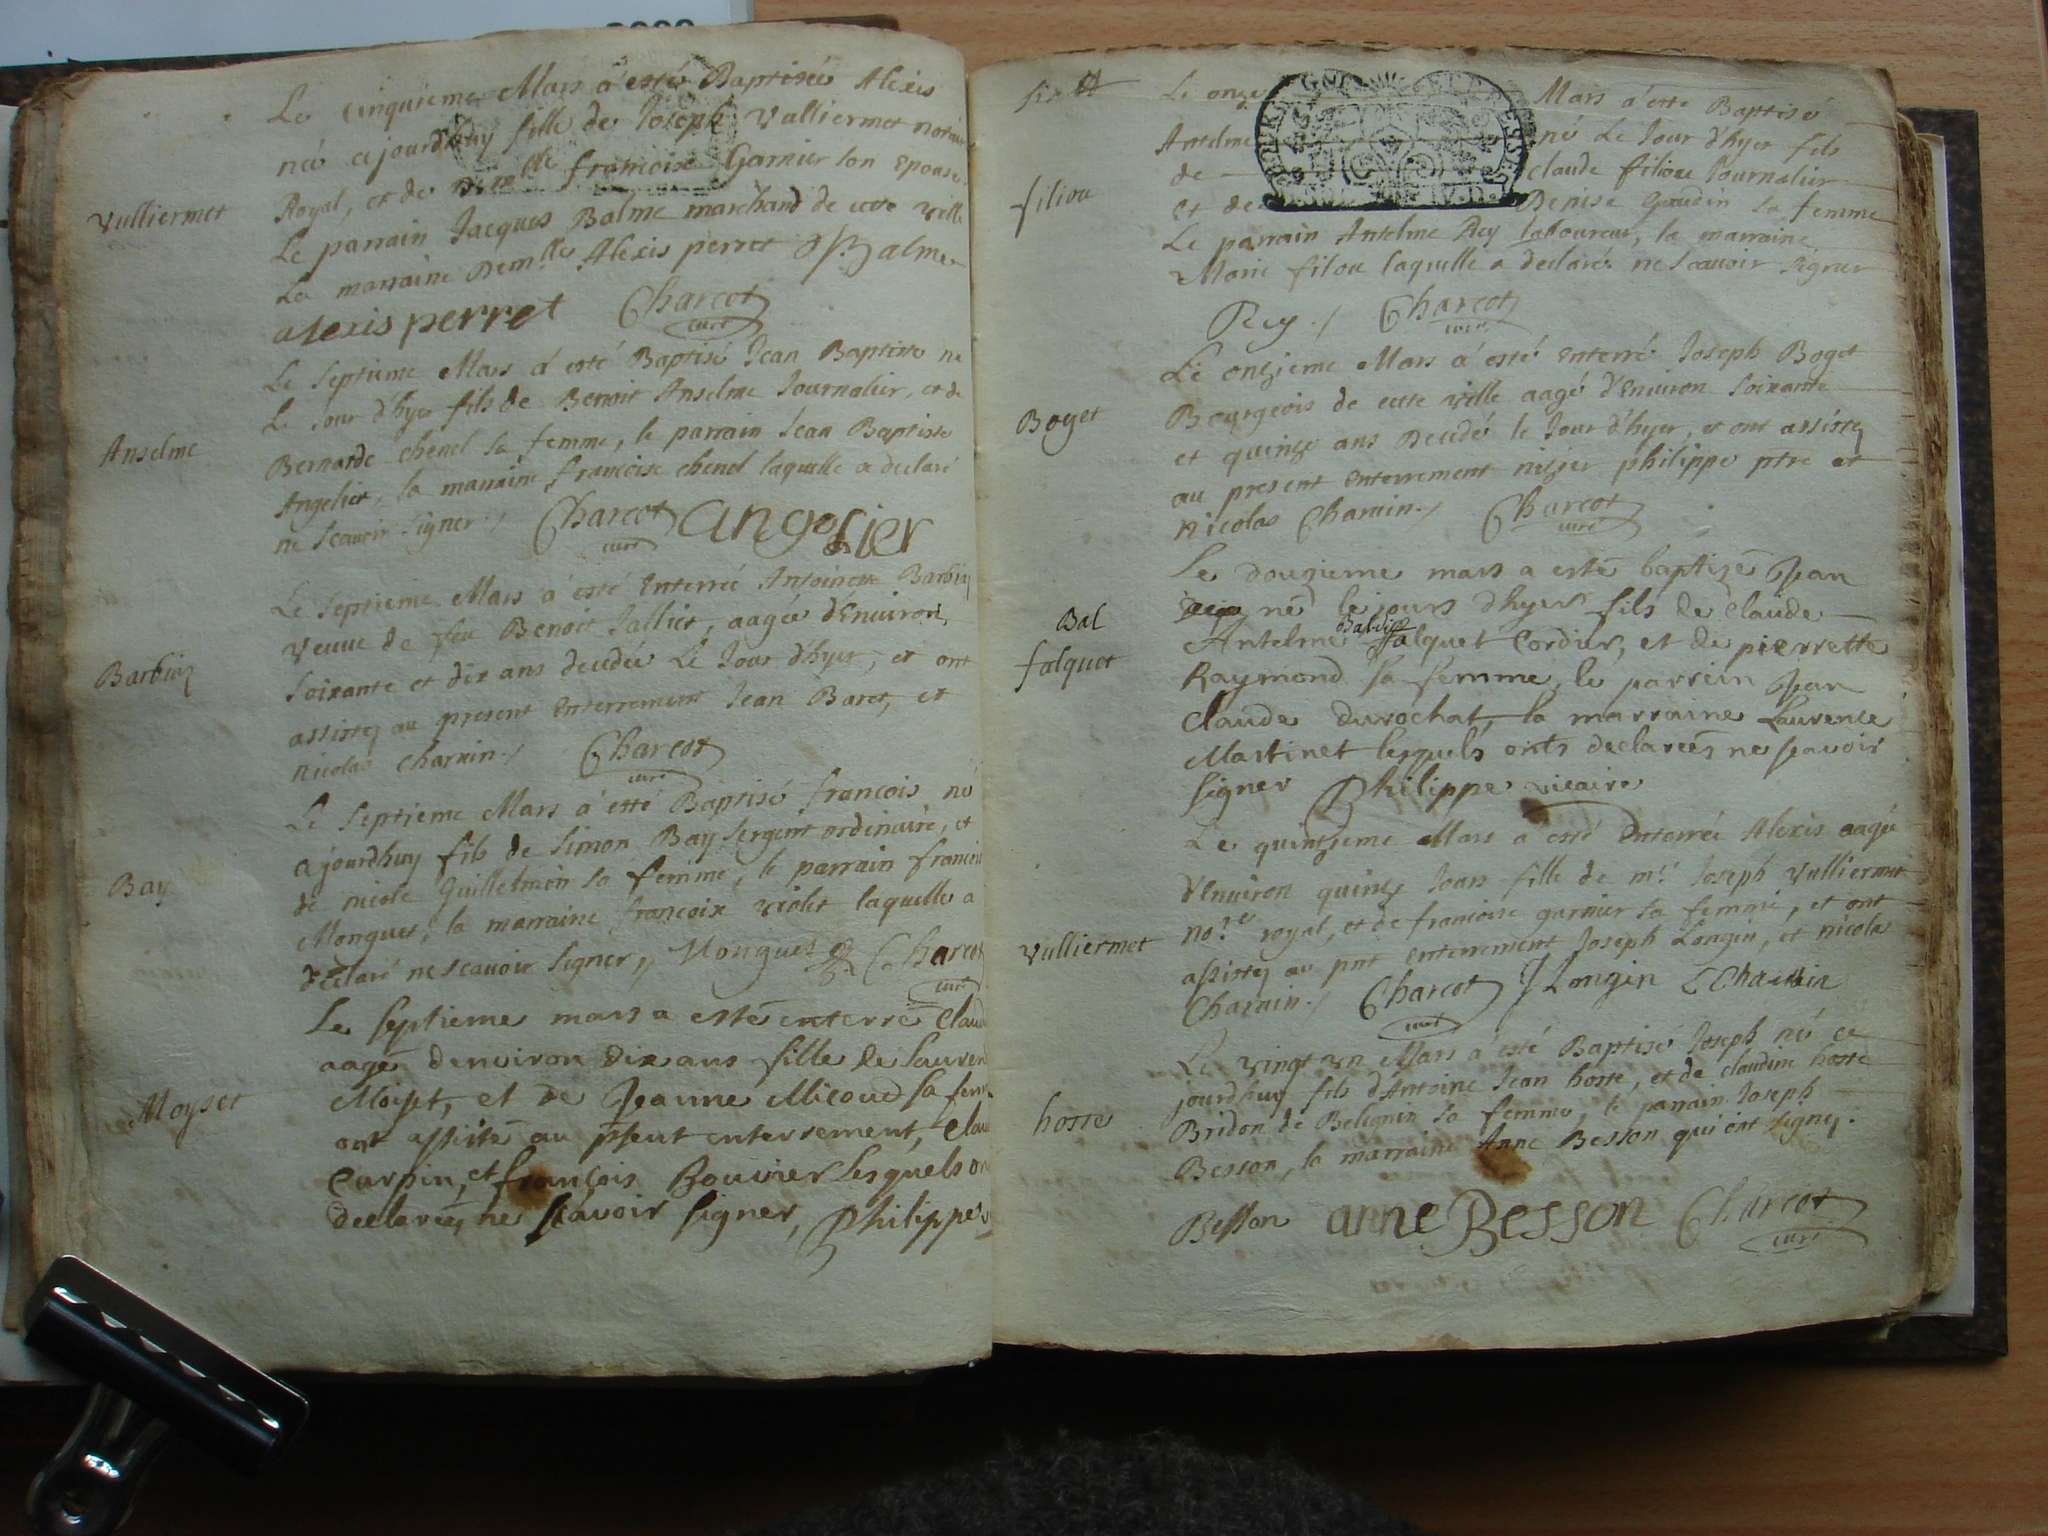 Le cinquieme Mars a esté Baptisée Alexis
née ajourdhuy fille de Joseph Vulliermet notaire
Royal, et de Demlle francoise Garnier son Epouse
Vulliermet
Le parrain Jacques Balme marchand de cette ville
La marraine Demlle Alexis perret Balme
alexis perret Charcot curé
Le septieme Mars a esté Baptisé Jean Baptiste né
Le Jour d'hyer fils de Benoit Anselme Journalier, et de
Anselme
Bernarde chenel sa femme, le parrain Jean Baptiste
Angelier, la marraine francoise chenel laquelle a declaré
ne scavoir signer./ Charcot curé angelier
Le septieme Mars a esté Enterrée Antoinette Barbin
veuve de feu Benoit Jallier, aagée d'Environ
Barbin
soixante et dix ans decedée Le Jour d'hyer, et ont
assistez au present Enterrement Jean Baret, et
nicolas Charvin./ Charcot curé
Le septieme Mars a esté Baptisé francois né
ajourdhuy fils de Simon Bay sergent ordinaire, et
Bay
de nicole Guillelmon sa femme, le parrain francois
Monguet, la marraine francoise violet laquelle a
declaré ne scavoir signer, Monguet Charcot curé
Le septieme mars a esté enterré Claud
aagé denviron dix ans fille de Lauren
Moyset
Moiset, et de Jeanne Micoud sa fem
ont assisté au psent enterrement, Clau
Carpin, et françois Bouvier lesquels on
declarez ne scavoir signer, Philippe v
Le onze Mars a esté Baptisé
Antelme né Le Jour d'hyer fils
de claude filiou Journalier
filiou
et de Denise Goudin sa femme
Le parrain Antelme Rey laboureur, la marraine
Marie filiou laquelle a declaré ne scavoir signer
Rey./ Charcot curé
Le onzieme Mars a esté Enterré Joseph Boget
Boget
Bourgeois de cette ville aagé d'Environ soixante
et quinze ans Decedé le Jour d'hyer, et ont assistez
au present Enterrement nizier philippe ptre et
nicolas Charvin./ Charcot curé
Le douzieme mars a esté baptizé Jean
Bal
né le jours d'hyer fils de Claude
falquet
Antelme Baldi falquet Cordier, et de pierrette
Raymond sa femme, le parrein Jean
Claude Durochat, la marraine Laurence
Martinet lesquels onts declareés ne scavoir
signer Philippe vicaire
Le quinzieme Mars a esté Enterrée Alexis aagée
d'Environ quinze Jours fille de mr. Joseph Vulliermet
Vulliermet
no.re royal, et de francoise garnier sa femme, et ont
assistez au pnt enterrement Joseph Longin, et nicolas
Charvin./ Charcot curé J Longin Charvin
Le vingt un Mars a esté Baptisé Joseph né ce
jourdhuy fils d'Antoine Jean hoste, et de claudine hoste
hoste
Bridon de Belignin sa femme, le parrain Joseph
Besson, la marraine Anne Besson qui ont signez.
Besson anne Besson Charcot curé